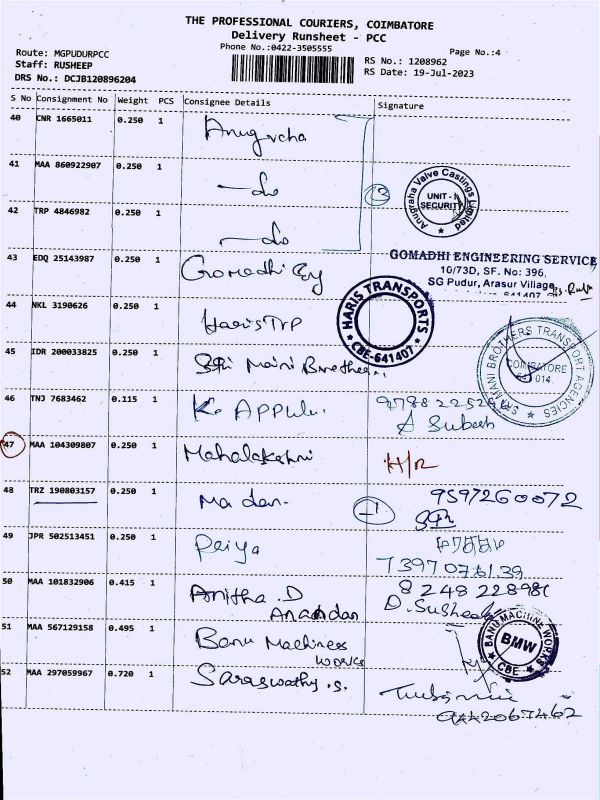 THE PROFESSIONAL COURIERS, COIMBATORE
Delivery Runsheet - PCC
Phone No.:0422-3505555
Page No.:4
Route: MGPUDURPCC
Staff: RUSHEEP
DRS No.: DCJB120896204
RS No.: 1208962
RS Date: 19-Jul-2023
S No Consignment No Weight PCS Consignee Details Signature
40 CNR 1665011 0.250 1 Anugraha
41 MAA 860922907 0.250 1 —do
3
Anugraha Valve Castings Limited
UNIT - I
SECURITY
42 TRP 4846982 0.250 1 —do
43 EDQ 25143987 0.250 1 Gomadhi Eng
GOMADHI ENGINEERING SERVICE
10/73D, SF. No: 396,
SG Pudur, Arasur Village,
641407
44 NKL 3190626 0.250 1 Haris TrP
HARIS TRANSPORTS
CBE-641407
45 IDR 200033825 0.250 1 Sri Mani Brothers
SRI MANI BROTHERS TRANSPORT AGENCIES
COIMBATORE
641 014
46 TNJ 7683462 0.115 1 K. APPulu.
A Subash
47 MAA 104309807 0.250 1 Mahalakshmi H/R
48 TRZ 190803157 0.250 1 Madan. -1 9597260072
49 JPR 502513451 0.250 1 Periya
7397076139
50 MAA 101832906 0.415 1 Anitha .D
Anandan
D. Susheela
51 MAA 567129158 0.495 1 Banu Machines
works
BANU MACHINE WORKS
BMW
CBE
52 MAA 297059967 0.720 1 Saraswathy .S.